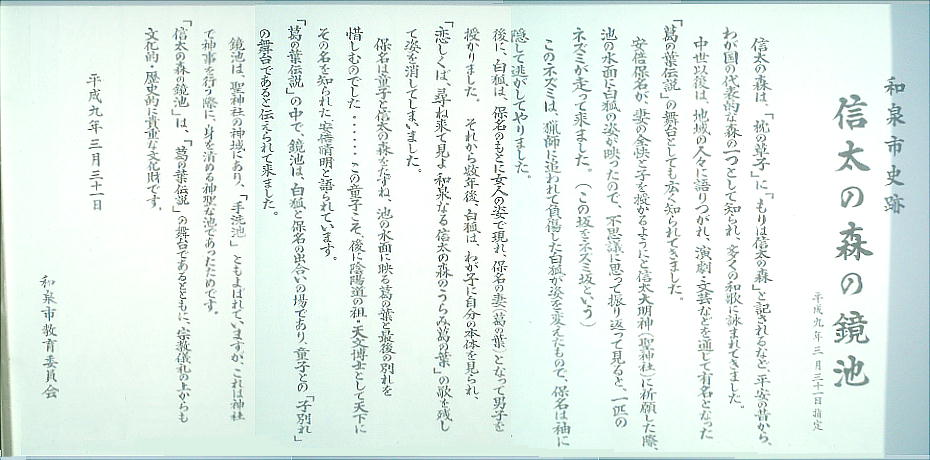 和泉市史跡
信太の森の鏡池
平成九年三月三十一日指定
信太の森は、「枕の草子」に「もりは信太の森」と記されるなど、平安の昔から、
わが国の代表的な森の一つとして知られ、多くの和歌に詠まれてきました。
中世以後は、地域の人々に語りつがれ、演劇・文芸などを通して有名となった
「葛の葉伝説」の舞台としても広く知られてきました。
安倍保名が、妻の全快と子を授かるようにと信太大明神(聖神社)に祈願した際、
池の水面に白狐の姿が映ったので、不思議に思って振り返って見ると、一匹の
ネズミが走って来ました。(この坂をネズミ坂という)
このネズミは、猟師に追われて負傷した白狐が姿を変えたもので、保名は袖に
隠して逃がしてやりました。
後に、白狐は、保名のもとに女人の姿で現れ、保名の妻(葛の葉)となって男子を
授かりました。それから数年後、白狐は、わが子に自分の本体を見られ、
「恋しくば、尋ね来て見よ 和泉なる 信太の森のうらみ葛の葉」の歌を残し
て姿を消してしまいました。
保名は童子と信太の森をたずね、池の水面に映る葛の葉と最後の別れを
惜しむのでした・・・・・この童子こそ、後に陰陽道の祖・天文博士として天下に
その名を知られた安倍晴明と語られています。
「葛の葉伝説」の中で、鏡池は、白狐と保名の出合いの場であり、童子との「子別れ」
の舞台であると伝えられて来ました。
鏡池は、聖神社の神域にあり、「手洗池」ともよばれていますが、これは神社
で神事を行う際に、身を清める神聖な池であったためです。
「信太の森の鏡池」は、「葛の葉伝説」の舞台であるとともに、宗教儀礼の上からも
文化的・歴史的に貴重な文化財です。
平成九年三月三十一日
和泉市教育委員会